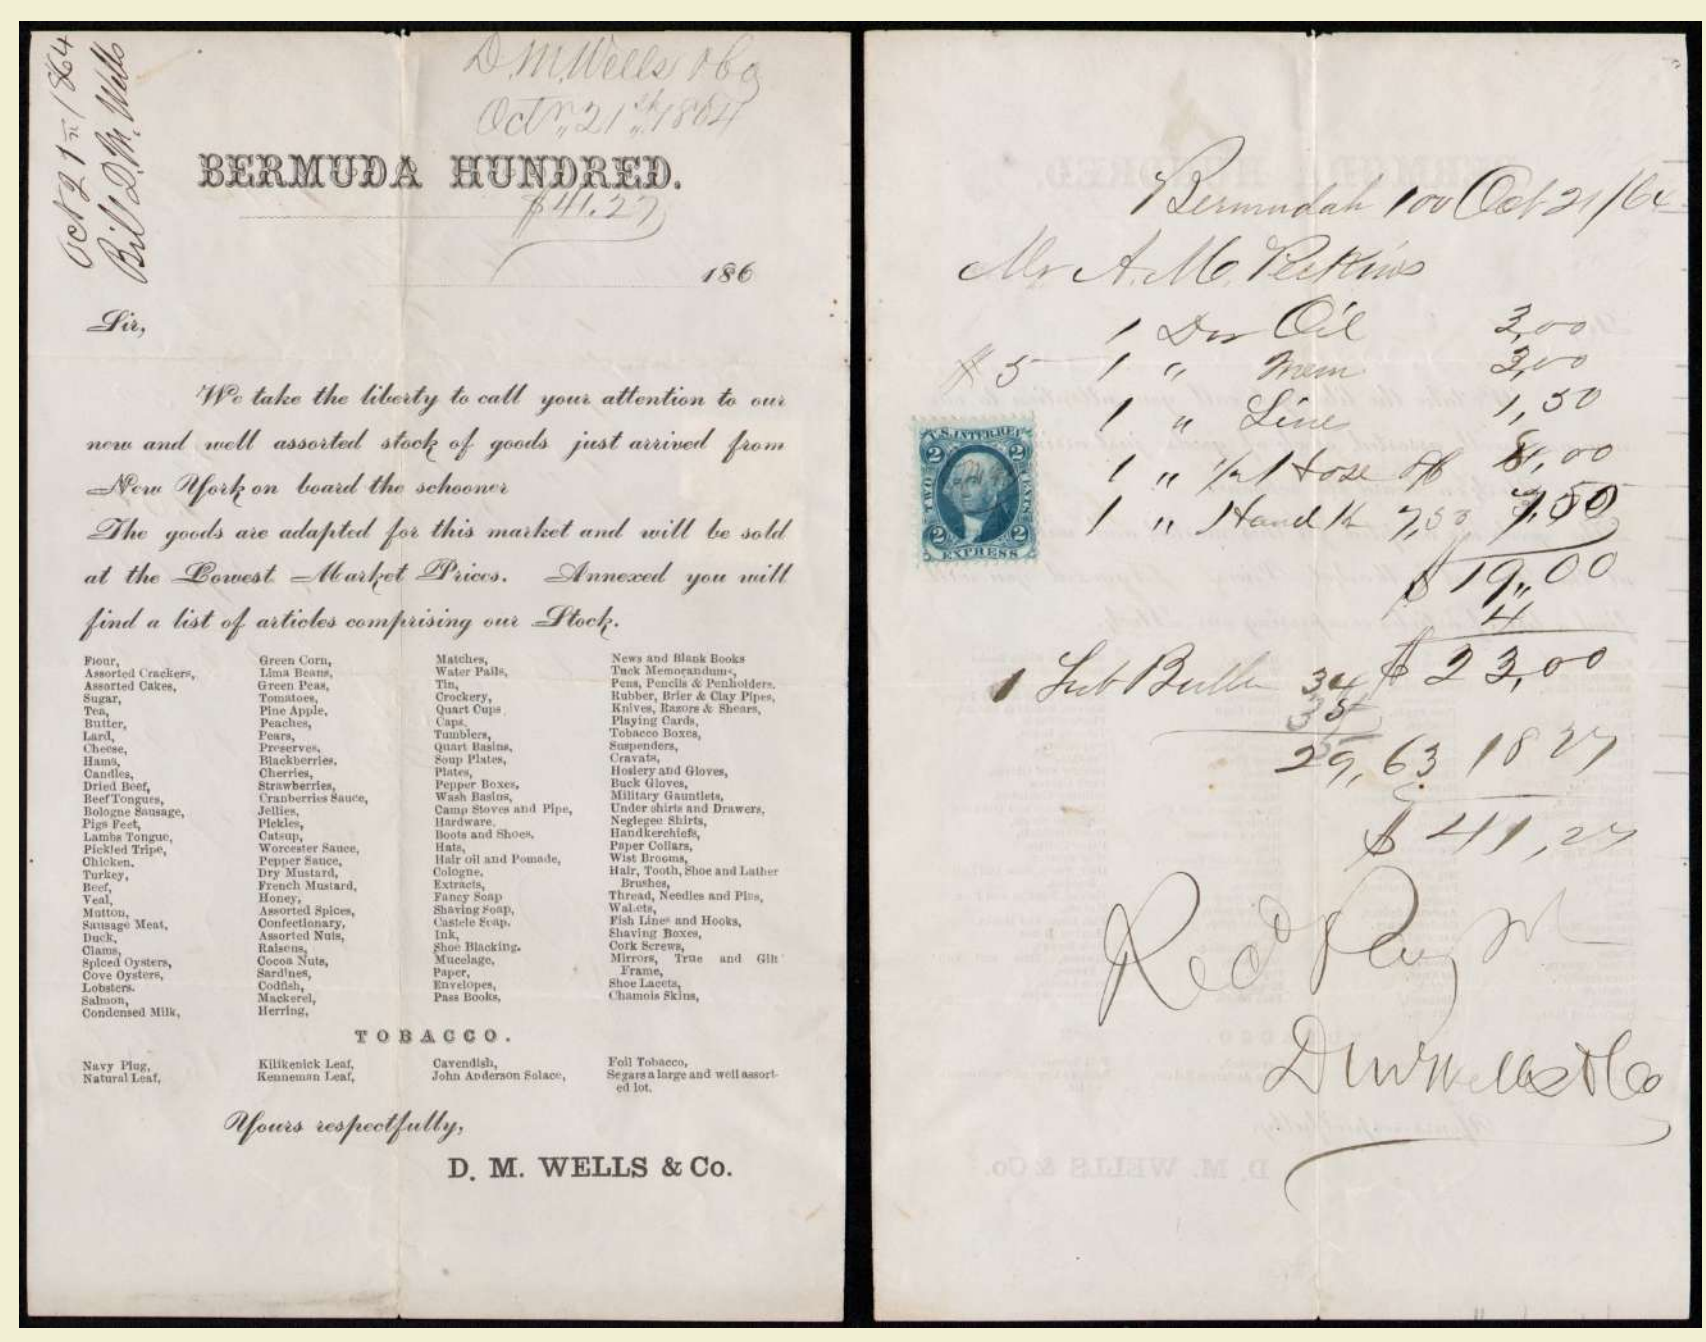 Oct 21st 1864
Bill D. M. Wells
D. M. Wells & Co
Octr 21st 1864
BERMUDA HUNDRED.
$41.27
186
Sir,
We take the liberty to call your attention to our
new and well assorted stock of goods just arrived from
New York on board the schooner
The goods are adapted for this market and will be sold
at the Lowest Market Prices. Annexed you will
find a list of articles comprising our Stock.
Flour,
Assorted Crackers,
Assorted Cakes,
Sugar,
Tea,
Butter,
Lard,
Cheese,
Hams,
Candles,
Dried Beef,
Beef Tongues,
Bologne Sausage,
Pigs Feet,
Lambs Tongue,
Pickled Tripe,
Chicken,
Turkey,
Beef,
Veal,
Mutton,
Sausage Meat,
Duck,
Clams,
Spiced Oysters,
Cove Oysters,
Lobsters.
Salmon,
Condensed Milk,
Green Corn,
Lima Beans,
Green Peas,
Tomatoes,
Pine Apple,
Peaches,
Pears,
Preserves,
Blackberries,
Cherries,
Strawberries,
Cranberries Sauce,
Jellies,
Pickles,
Catsup,
Worcester Sauce,
Pepper Sauce,
Dry Mustard,
French Mustard,
Honey,
Assorted Spices,
Confectionary,
Assorted Nuts,
Raisens,
Cocoa Nuts,
Sardines,
Codfish,
Mackerel,
Herring,
Matches,
Water Pails,
Tin,
Crockery,
Quart Cups
Caps,
Tumblers,
Quart Basins,
Soup Plates,
Plates,
Pepper Boxes,
Wash Basins,
Camp Stoves and Pipe,
Hardware,
Boots and Shoes,
Hats,
Hair oil and Pomade,
Cologne,
Extracts,
Fancy Soap
Shaving Soap,
Castele Soap,
Ink,
Shoe Blacking.
Mucelage,
Paper,
Envelopes,
Pass Books,
News and Blank Books
Tuck Memorandums,
Pens, Pencils & Penholders.
Rubber, Brier & Clay Pipes,
Knives, Razors & Shears,
Playing Cards,
Tobacco Boxes,
Suspenders,
Cravats,
Hosiery and Gloves,
Buck Gloves,
Military Gauntlets,
Under shirts and Drawers,
Neglegee Shirts,
Handkerchiefs,
Paper Collars,
Wist Brooms,
Hair, Tooth, Shoe and Lather
Brushes,
Thread, Needles and Pins,
Walets,
Fish Lines and Hooks,
Shaving Boxes,
Cork Screws,
Mirrors, True and Gilt
Frame,
Shoe Lacets,
Chamois Skins,
TOBACCO.
Navy Plug,
Natural Leaf,
Kilikenick Leaf,
Kenneman Leaf,
Cavendish,
John Anderson Solace,
Foil Tobacco,
Segars a large and well assort-
ed lot.
Yours respectfully,
D. M. WELLS & Co.
Bermudah 100 Oct 21/64
Mr A. M. Perkins
1 Doz Oil 3,00
$5 1 " Mem 3,00
1 " Line 1,50
1 " 1/2 Hose 4,00
1 " Hand K 7,50 7,50
$19,00
4
1 Tub Butter 34 $23,00
35
29,63 18 27
$41,27
Recd Paymt
D M Wells & Co
U.S. INTER. REV.
2 2
TWO CENTS
2 2
EXPRESS